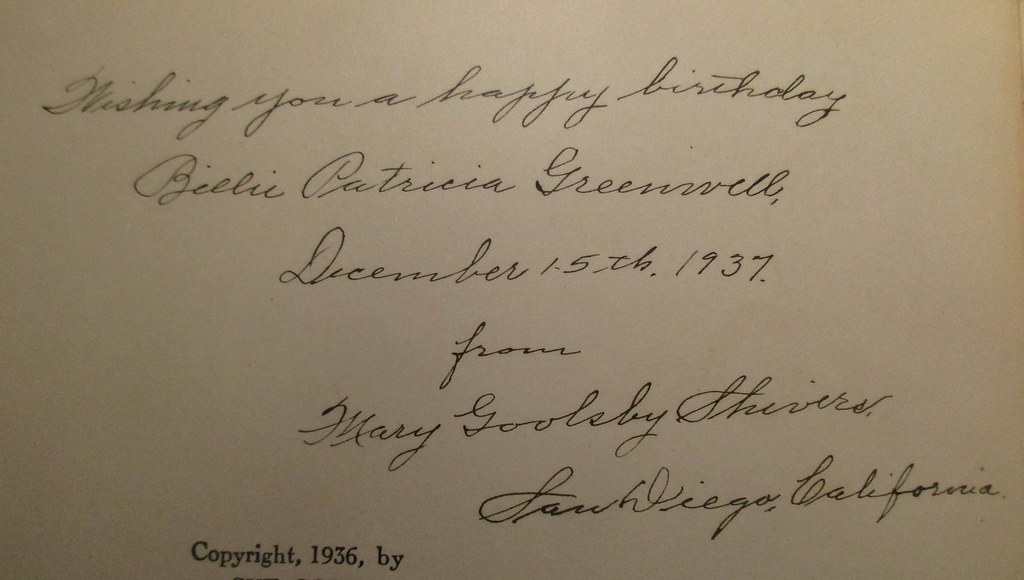 Wishing you a happy birthday
Billie Patricia Greenwell,
December 15th. 1937.
from
Mary Goolsby Shivers.
San Diego, California.
Copyright, 1936, by